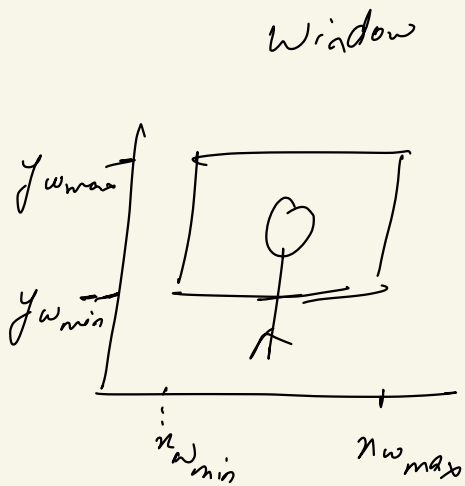 Window
y w max
y w min
x w min
x w max